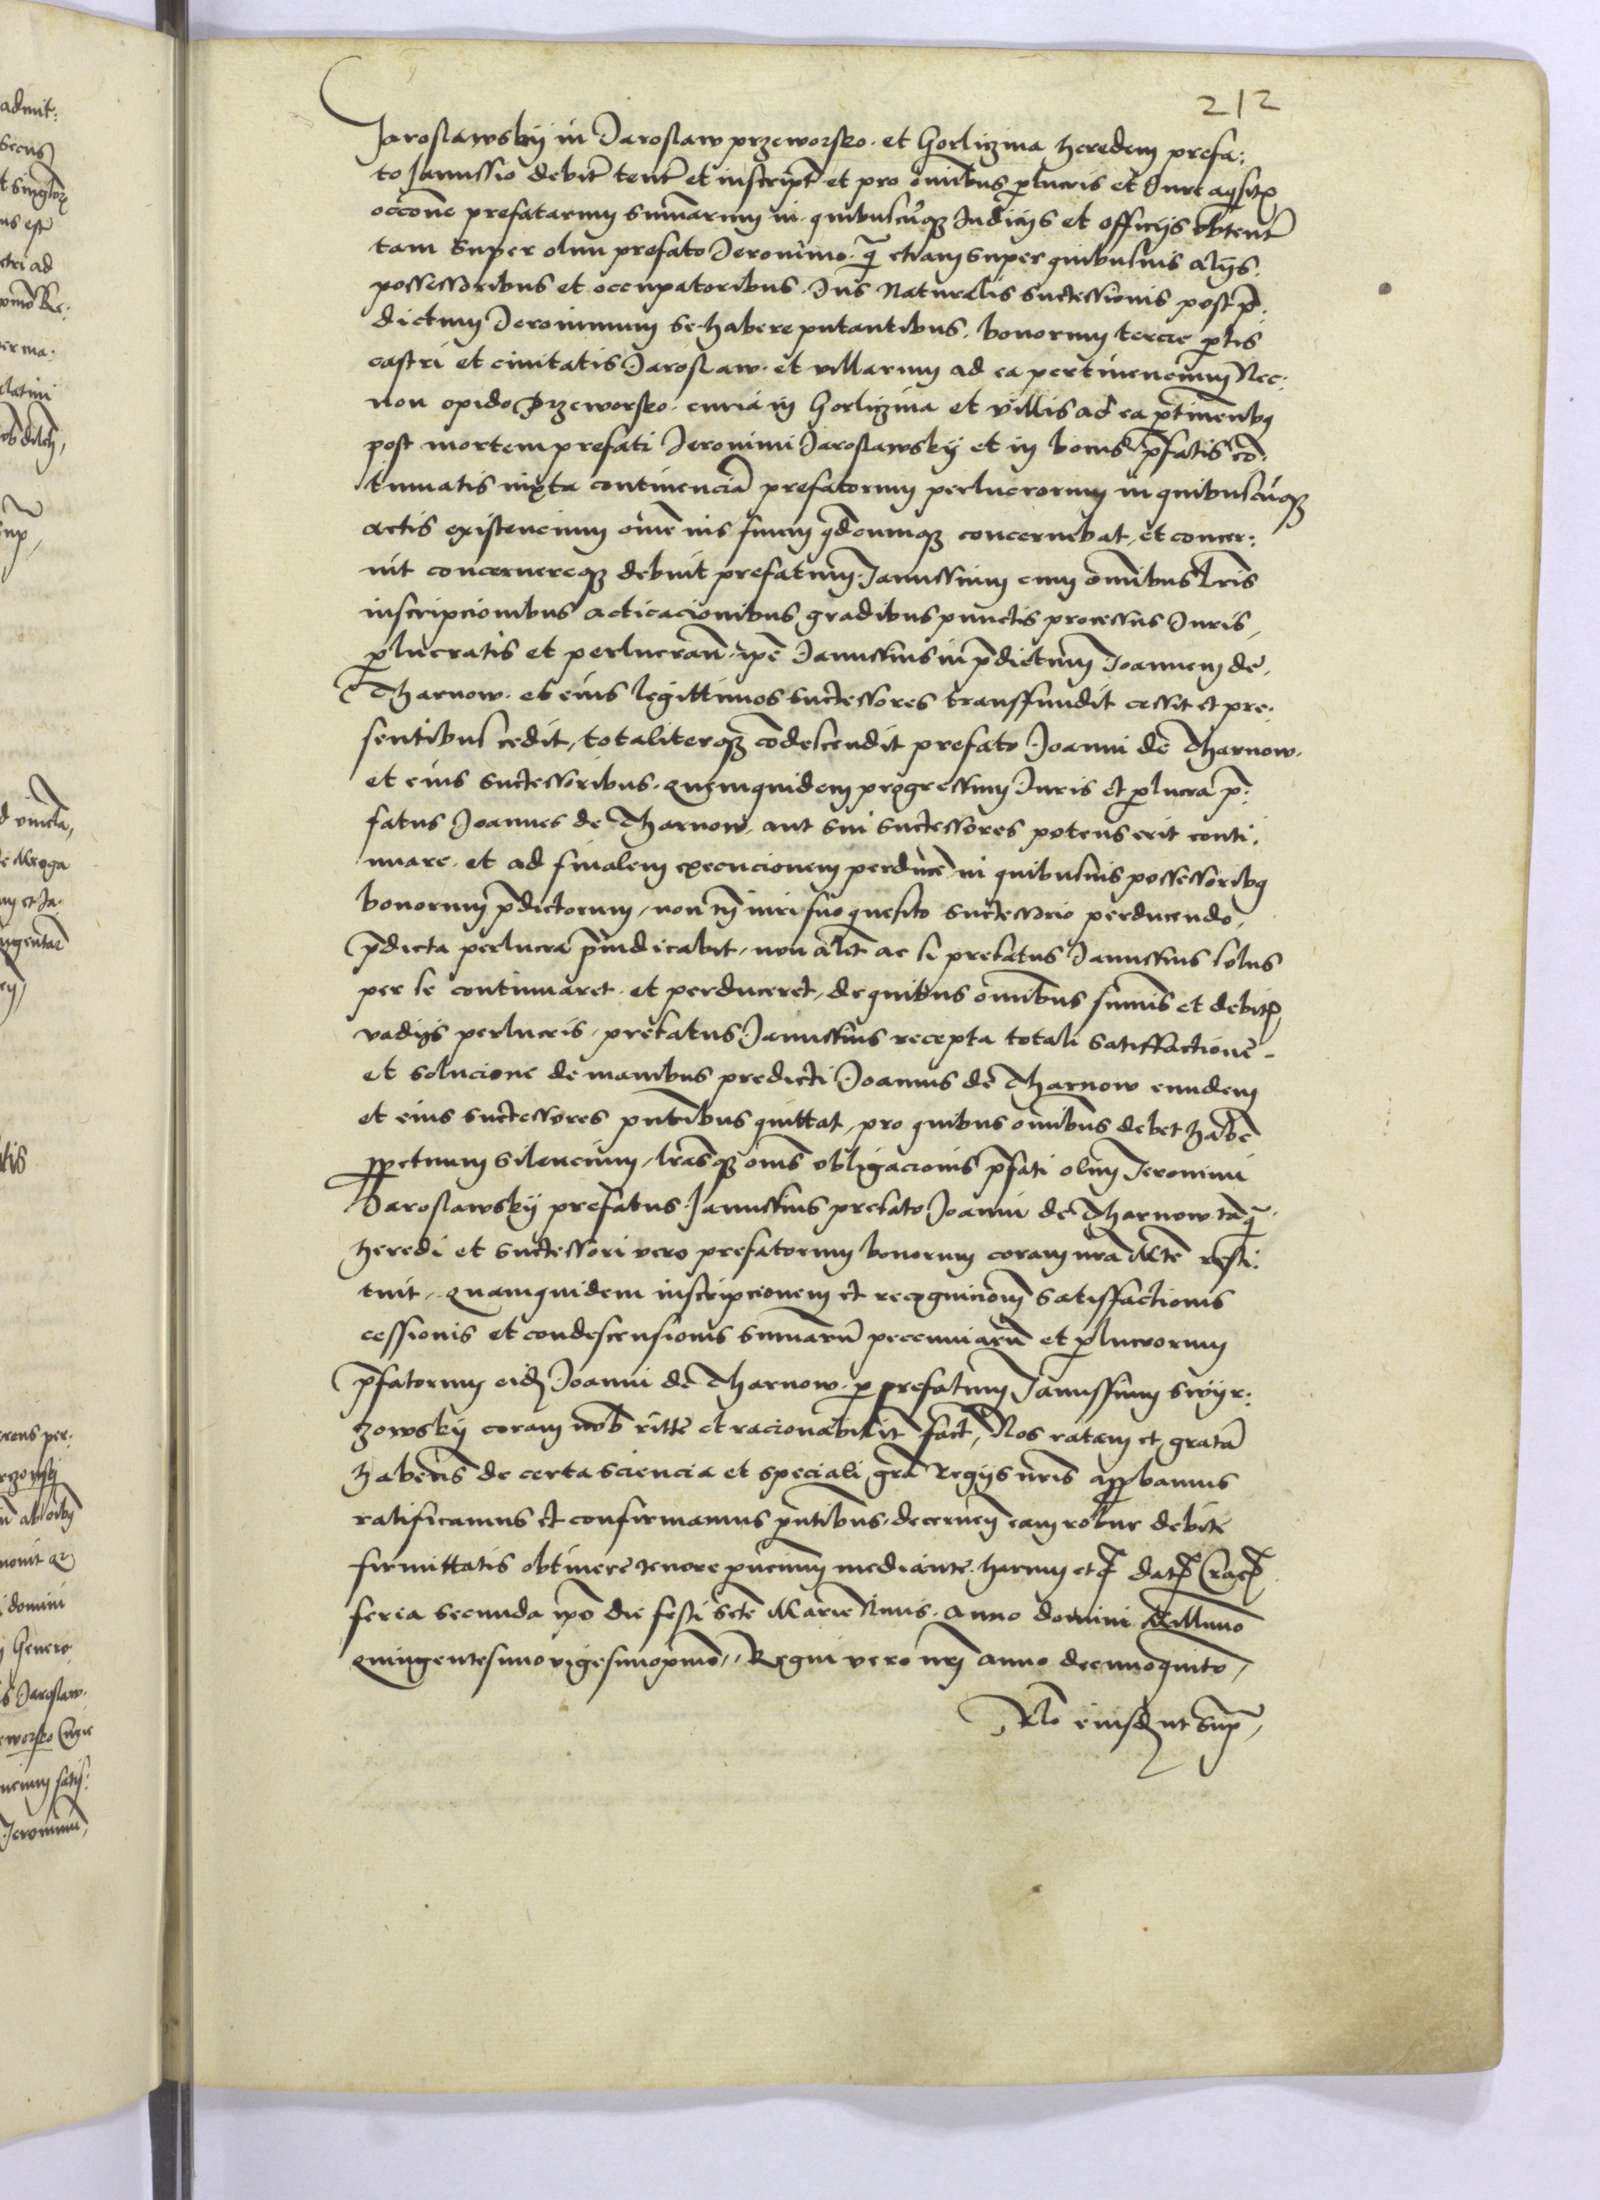 212
Jaroslawskÿ in Jaroslaw przeworsko. et Gorliczina heredem prefa:
to Janussio debit tent et inscript et pro omnibus plucris et Jure aqsit
occone prefatarum summarum in quibuscuqz Judicÿs et officÿs obtent
tam super olim prefato Jeronimo. q etiam super quibusuis alÿs.
possessoribus et occupatoribus. Jus Naturalis successionis post p:
dictum Jeronimum se habere putantibus. bonorum tercie ptis
castri et ciuitatis Jaroslaw. et villarum ad ea pertinencium Nec:
non opido Przeworsko. curia in Gorliczina et villis ad ea ptinentibq
post mortem prefati Jeronimi Jaroslawskÿ et in bonis pfatis co:
tinuatis iuxta continencia prefatorum perlucrorum in quibuscuqz
actis existencium ome ius suum qdcumqz concernebat, et concer:
nit concernereqz debuit prefatum. Janussium cum omnibus Lris
inscripcionibus acticacionibus gradibus punctis processus Juris,
plucratis et perlucran. ipe Janussius in pdictum Joannem de.
Tharnow. et eius legittimos successores transfundit cessit et pre:
sentibus cedit, totaliterqz codescendit prefato Joanni de Tharnow.
et eius successoribus. quemquidem progressum Juris et plucra p:
fatus Joannes de Tharnow. aut sui successores potens erit conti:
nuare. et ad finalem execucionem perducere in quibusuis possessoribq
bonorum pdictorum, non tn iuri suo quesito successorio perducendo,
pdicta perlucra piudicabit, non alit ac si prefatus Janussius solus
per se continuaret. et perduceret, de quibus omnibus summis et debit
vadÿs perlucris, prefatus Janussius recepta totali satisfactione.
et solucione de manibus predicti Joannis de Tharnow eundem
et eius successores pntibus quittat, pro quibus omnibus debet habe
ppetuum silencium, lrasqz omes obligacionis pfati olim Jeronimi
Jaroslawskÿ prefatus Janussius prefato Joanni de Tharnow taq
heredi et successori vero prefatorum bonorum coram nra Mte resti:
tuit. quamquidem inscripcionem et recognicionem satisfactionis
cessionis et condescensionis summaru pecuniaru et plucrorum
pfatorum eid Joanni de Tharnow. p prefatum Janussium swÿr:
zowskÿ coram nob ritte et racionabilit fact, Nos ratam et grata
habentes de certa sciencia et speciali gra Regÿs nris approbamus
ratificamus et confirmamus pntibus. decernen eam robur debite
firmittatis obtinere tenore pncium mediante. harum etc dat Crac
feria secunda ipo die festi scte Marie Niuis. anno domini Millmo
quingentesimo vigesimo pmo, Regni vero nri anno decimoquinto,
Rlo eiusd ut supra,